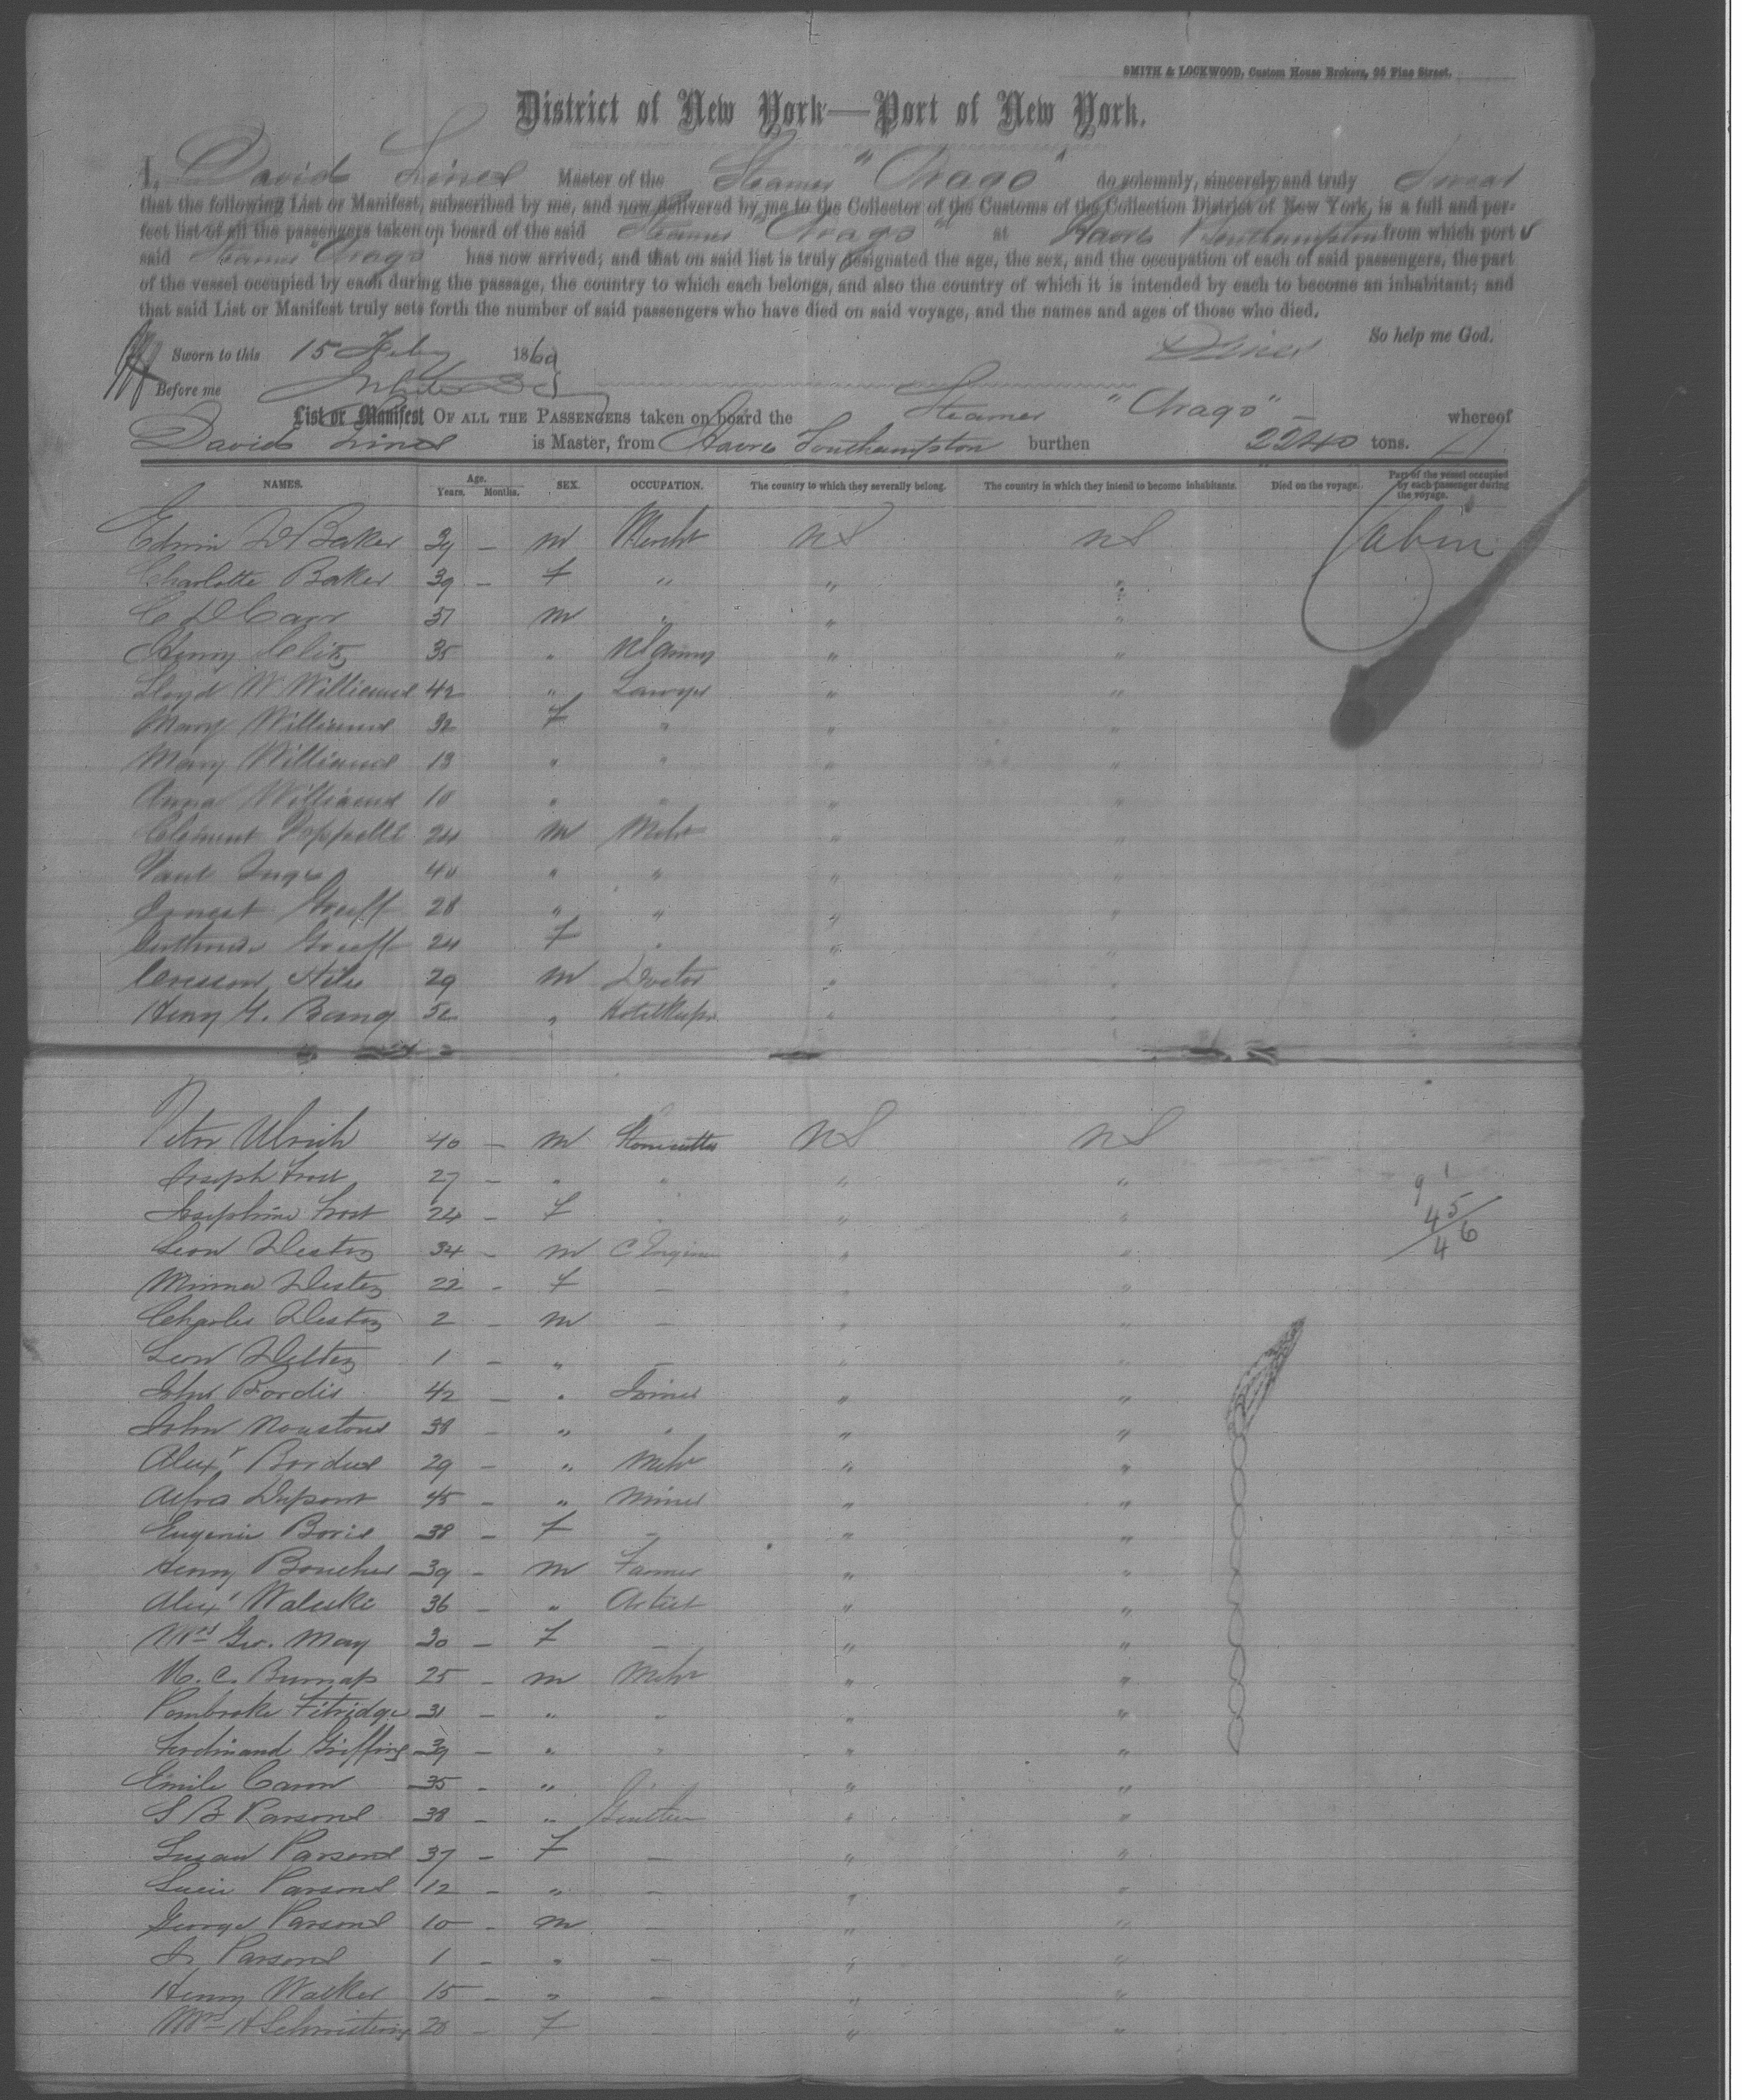 SMITH & LOCKWOOD, Custom House Brokers, 95 Pine Street.
District of New York—Port of New York.
I, David Lines Master of the Steamer "Arago" do solemnly, sincerely and truly Swear
that the following List or Manifest, subscribed by me, and now delivered by me to the Collector of the Customs of the Collection District of New York, is a full and per-
fect list of all the passengers taken on board of the said Steamer "Arago" at Havre Southampton from which port s
said Steamer Arago has now arrived; and that on said list is truly designated the age, the sex, and the occupation of each of said passengers, the part
of the vessel occupied by each during the passage, the country to which each belongs, and also the country of which it is intended by each to become an inhabitant; and
that said List or Manifest truly sets forth the number of said passengers who have died on said voyage, and the names and ages of those who died.
So help me God.
Sworn to this 15 Feby 1860
DLines
Before me
List or Manifest OF ALL THE PASSENGERS taken on board the Steamer "Arago" whereof
David Lines is Master, from Havre Southampton burthen 2240 tons.
NAMES. Age. Years. Months. SEX. OCCUPATION. The country to which they severally belong. The country in which they intend to become inhabitants. Died on the voyage. Part of the vessel occupied by each passenger during the voyage.
Edwin D Baker 39 — m Mercht US US Cabin
Charlotte Baker 39 — F " " "
C D Carr 37 m " " "
Henry Clitz 35 " US Army " "
Lloyd W Williams 42 " Lawyer " "
Mary Williams 32 F " " "
Mary Williams 13 " " " "
Anna Williams 10 " " " "
Clement 24 m Mcht " "
Paul 40 " " " "
Ernest Greeff 28 " " " "
Greeff 24 F " " "
Cresson Stiles 29 m Doctor "
Henry G. Bang 52 " Hotelkeepr "
Peter Ulrich 40 — m Stonecutter US US
Joseph Frost 27 — " " " "
Josephine Frost 24 — F " " "
Leon Destez 34 — m C Engineer " "
Minna Destez 22 — F — " "
Charles Destez 2 — m — " "
Leon Destez 1 — " — " "
John Bordis 42 — " Joiner " "
John 38 — " " " "
Alexr 29 — " Mcht " "
Alfred Dupont 45 — " Miner " "
Eugenie Boris 38 — F — " "
Henry Boucher 39 — m Farmer " "
Alexr Waluke 36 — " Artist " "
Mrs Geo. May 30 — F — " "
M. C. Burnap 25 — m Mcht " "
Pembroke Fetridge 31 — " " " "
Ferdinand Griffing 39 — " " " "
Emile Caron 35 — " " " "
S B Parsons 38 — " Gentlen " "
Susan Parsons 37 — F — " "
Parsons 12 — " — " "
George Parsons 10 — m — " "
Parsons 1 — " — " "
Henry Walker 15 — " — " "
Mrs H 28 — F " "
9 1
45
4 6